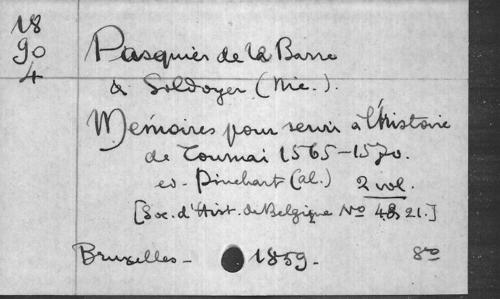 18
90
4
Pasquier de la Barre
& Soldoyer (Nic.).
Mémoires pour servir à l'Histoire
de Tournai 1565-1570.
ed. Pinchart (al.) 2 vol.
[Soc. d'Hist. de Belgique No 48 21.]
Bruxelles - 1859. 8vo